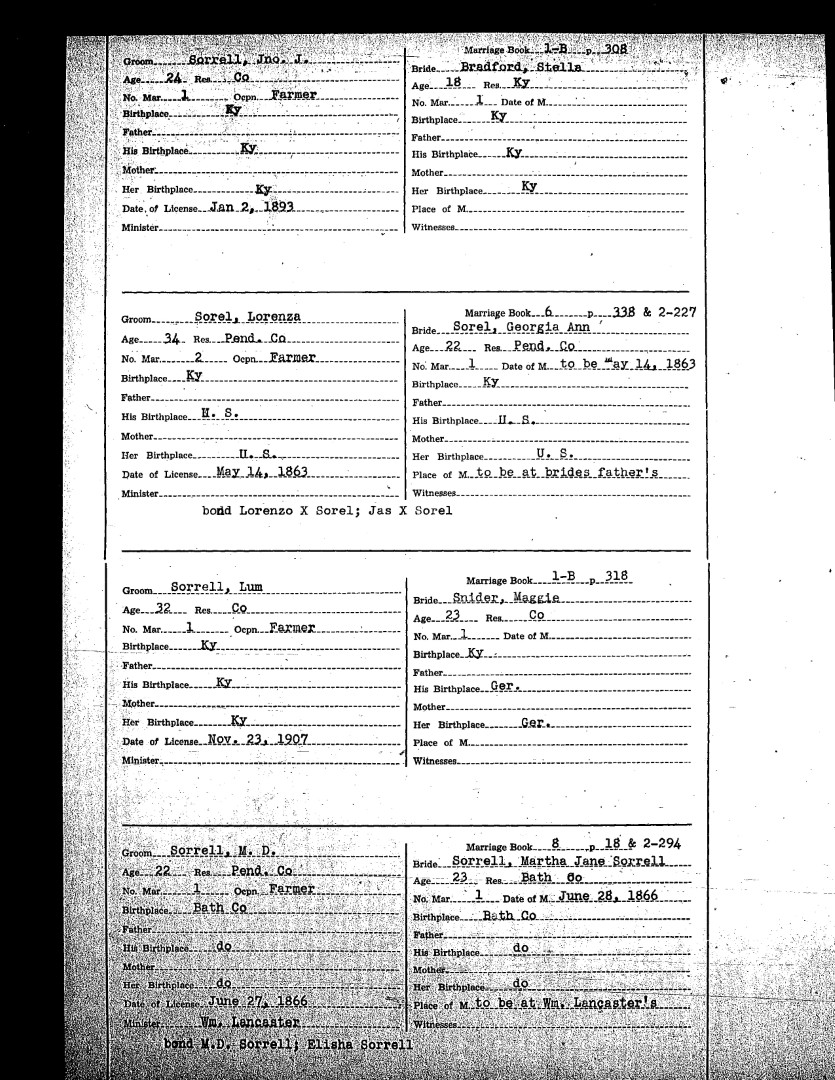 Groom Sorrell, Jno. J.
Age 24 Res. Co
No. Mar. 1 Ocpn. Farmer
Birthplace Ky
Father
His Birthplace Ky
Mother
Her Birthplace Ky
Date of License Jan 2, 1893
Minister
Marriage Book 1-B p. 308
Bride Bradford, Stella
Age 18 Res. Ky
No. Mar. 1 Date of M.
Birthplace Ky
Father
His Birthplace Ky
Mother
Her Birthplace Ky
Place of M.
Witnesses
Groom Sorel, Lorenza
Age 34 Res. Pend. Co
No. Mar. 2 Ocpn. Farmer
Birthplace Ky
Father
His Birthplace U. S.
Mother
Her Birthplace U. S.
Date of License May 14, 1863
Minister
Marriage Book 6 p. 338 & 2-227
Bride Sorel, Georgia Ann
Age 22 Res. Pend. Co
No. Mar. 1 Date of M. to be May 14, 1863
Birthplace Ky
Father
His Birthplace U. S.
Mother
Her Birthplace U. S.
Place of M. to be at brides father's
Witnesses
bond Lorenzo X Sorel; Jas X Sorel
Groom Sorrell, Lum
Age 32 Res. Co
No. Mar. 1 Ocpn. Farmer
Birthplace Ky
Father
His Birthplace Ky
Mother
Her Birthplace Ky
Date of License Nov. 23, 1907
Minister
Marriage Book 1-B p. 318
Bride Snider, Maggie
Age 23 Res. Co
No. Mar. 1 Date of M.
Birthplace Ky
Father
His Birthplace Ger.
Mother
Her Birthplace Ger.
Place of M.
Witnesses
Groom Sorrell, M. D.
Age 22 Res. Pend. Co
No. Mar. 1 Ocpn. Farmer
Birthplace Bath Co
Father
His Birthplace do
Mother
Her Birthplace do
Date of License June 27, 1866
Minister Wm. Lancaster
Marriage Book 8 p. 18 & 2-294
Bride Sorrell, Martha Jane Sorrell
Age 23 Res. Bath Co
No. Mar. 1 Date of M. June 28, 1866
Birthplace Bath Co
Father
His Birthplace do
Mother
Her Birthplace do
Place of M. to be at Wm. Lancaster's
Witnesses
bond M.D. Sorrell; Elisha Sorrell